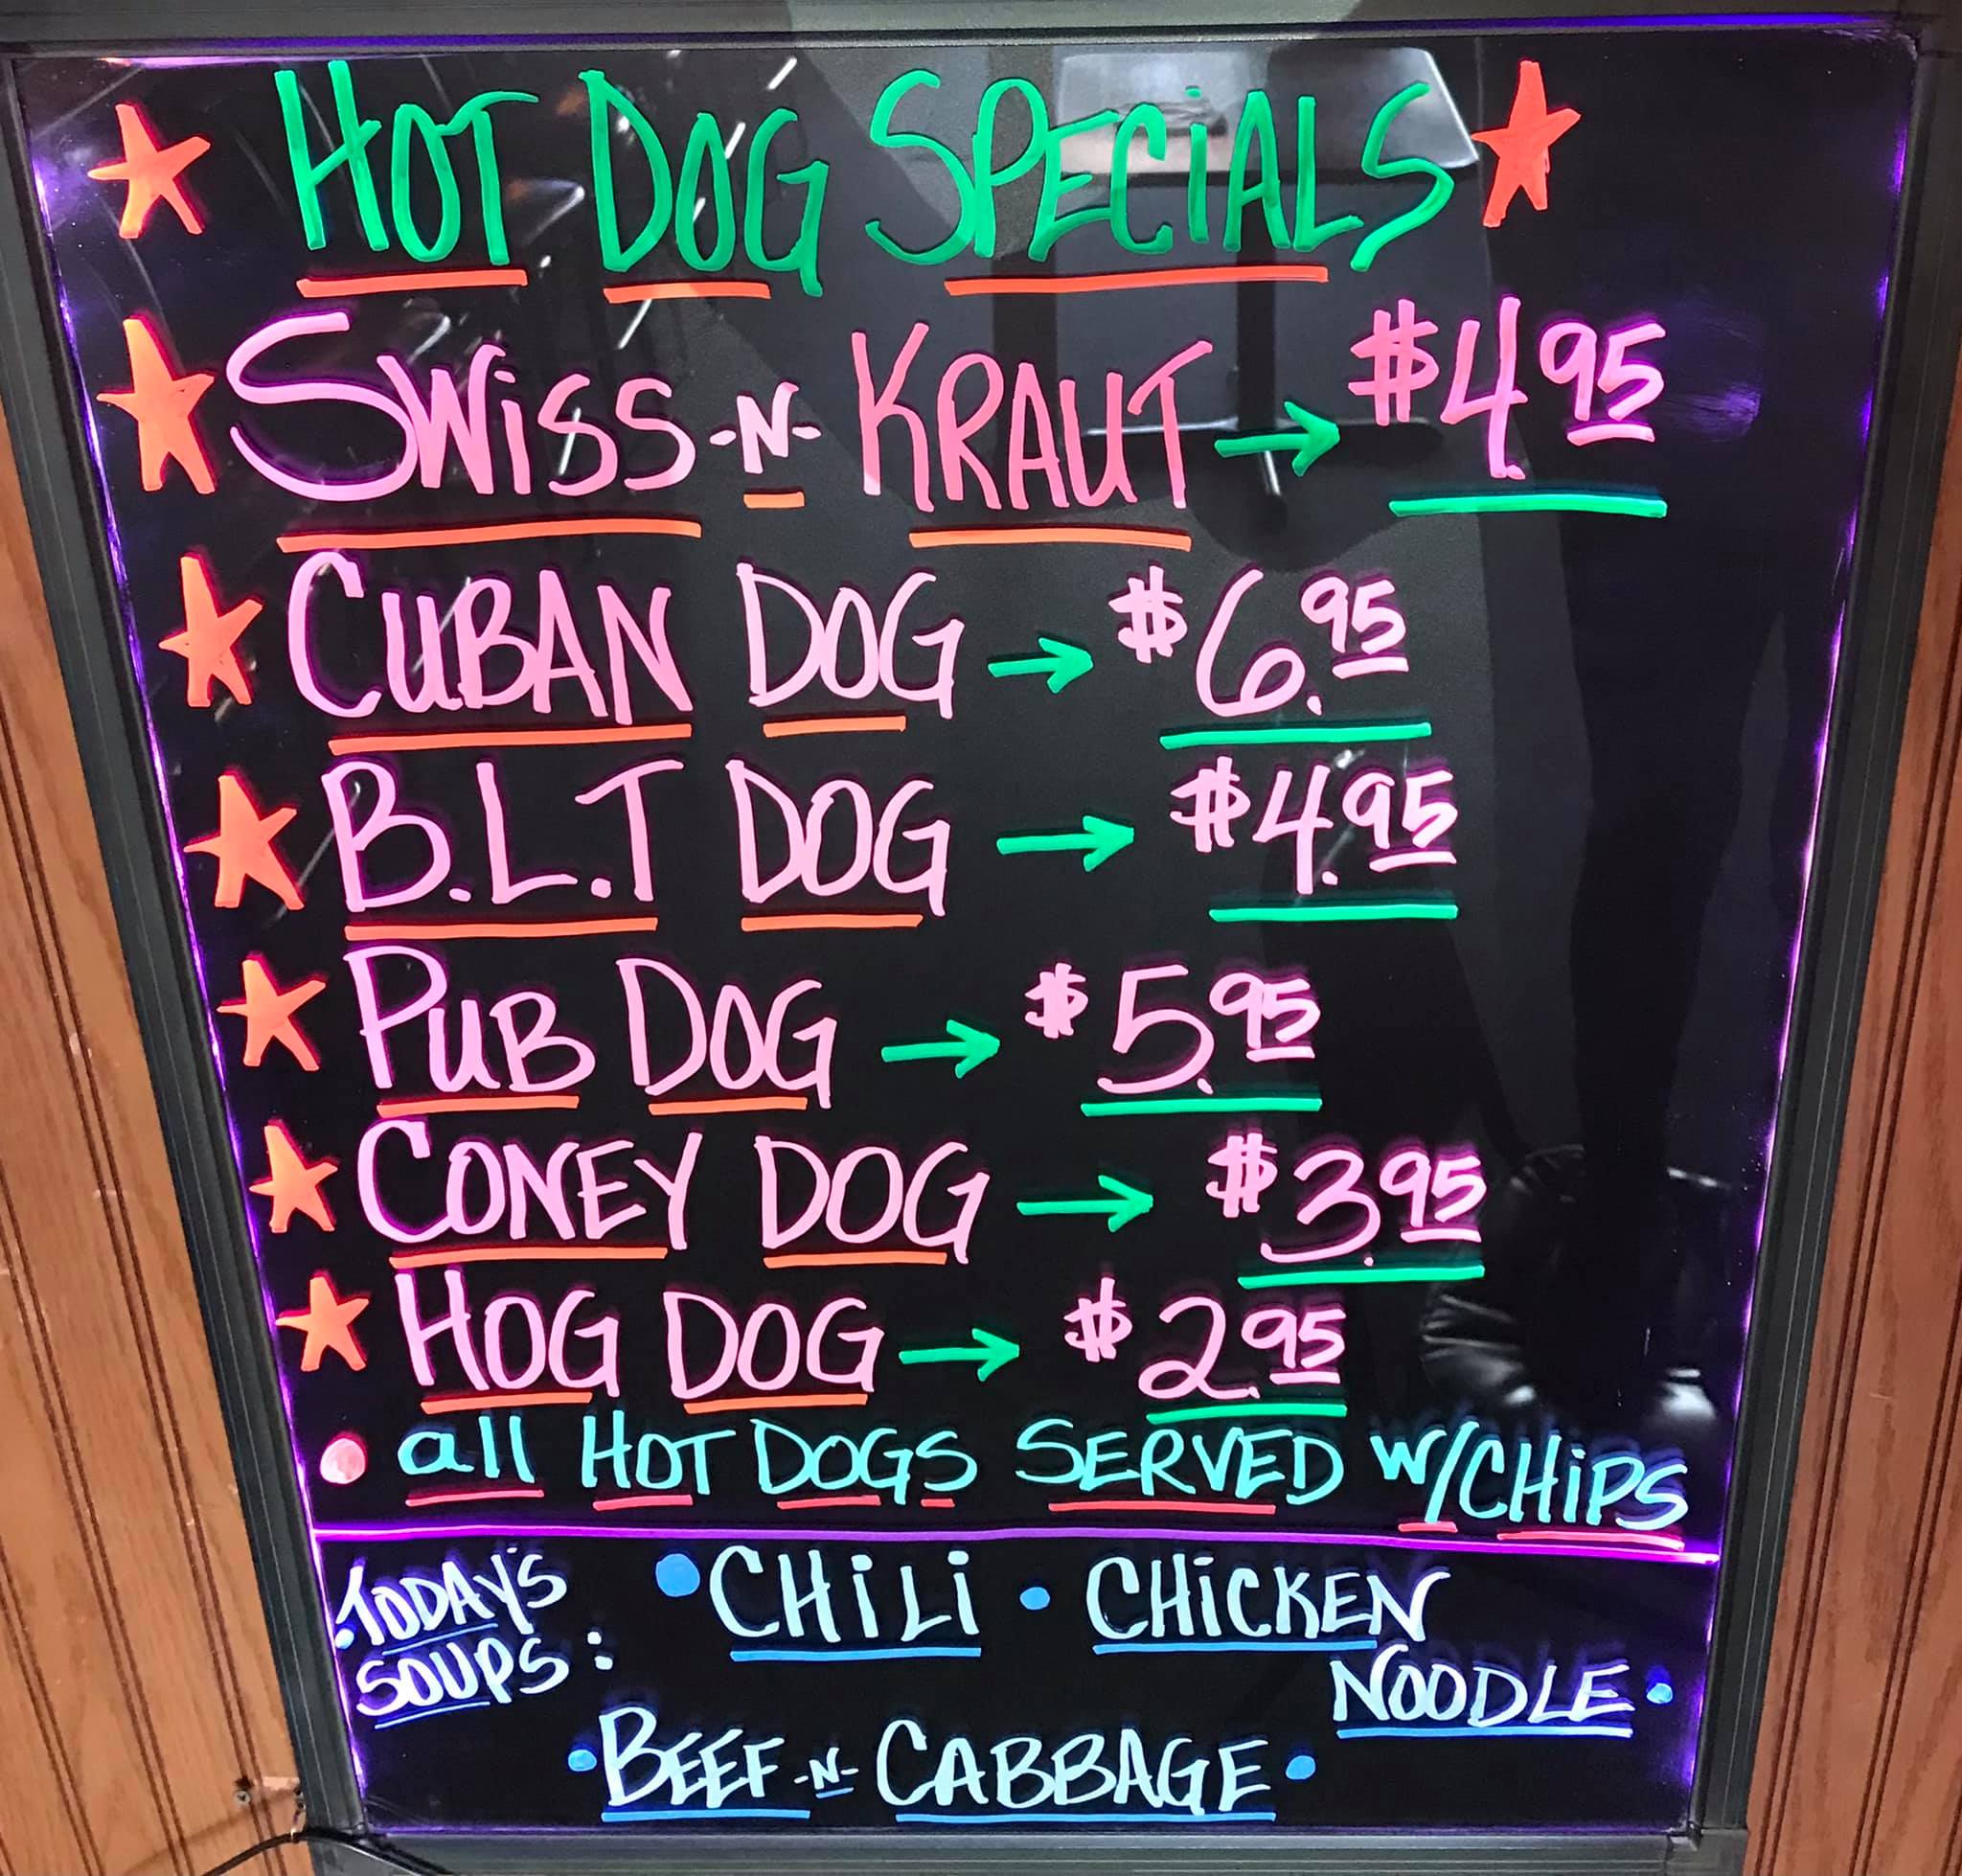 HOT DOG SPECiALS
SWiSS -N- KRAUT → $4.95
CUBAN DOG → $6.95
B.L.T DOG → $4.95
PUB DOG → $5.95
CONEY DOG → $3.95
HOG DOG → $2.95
• all HOT DOGS SERVED W/CHiPS
TODAY'S SOUPS: • CHiLi • CHiCKEN NOODLE •
• BEEF -N- CABBAGE •